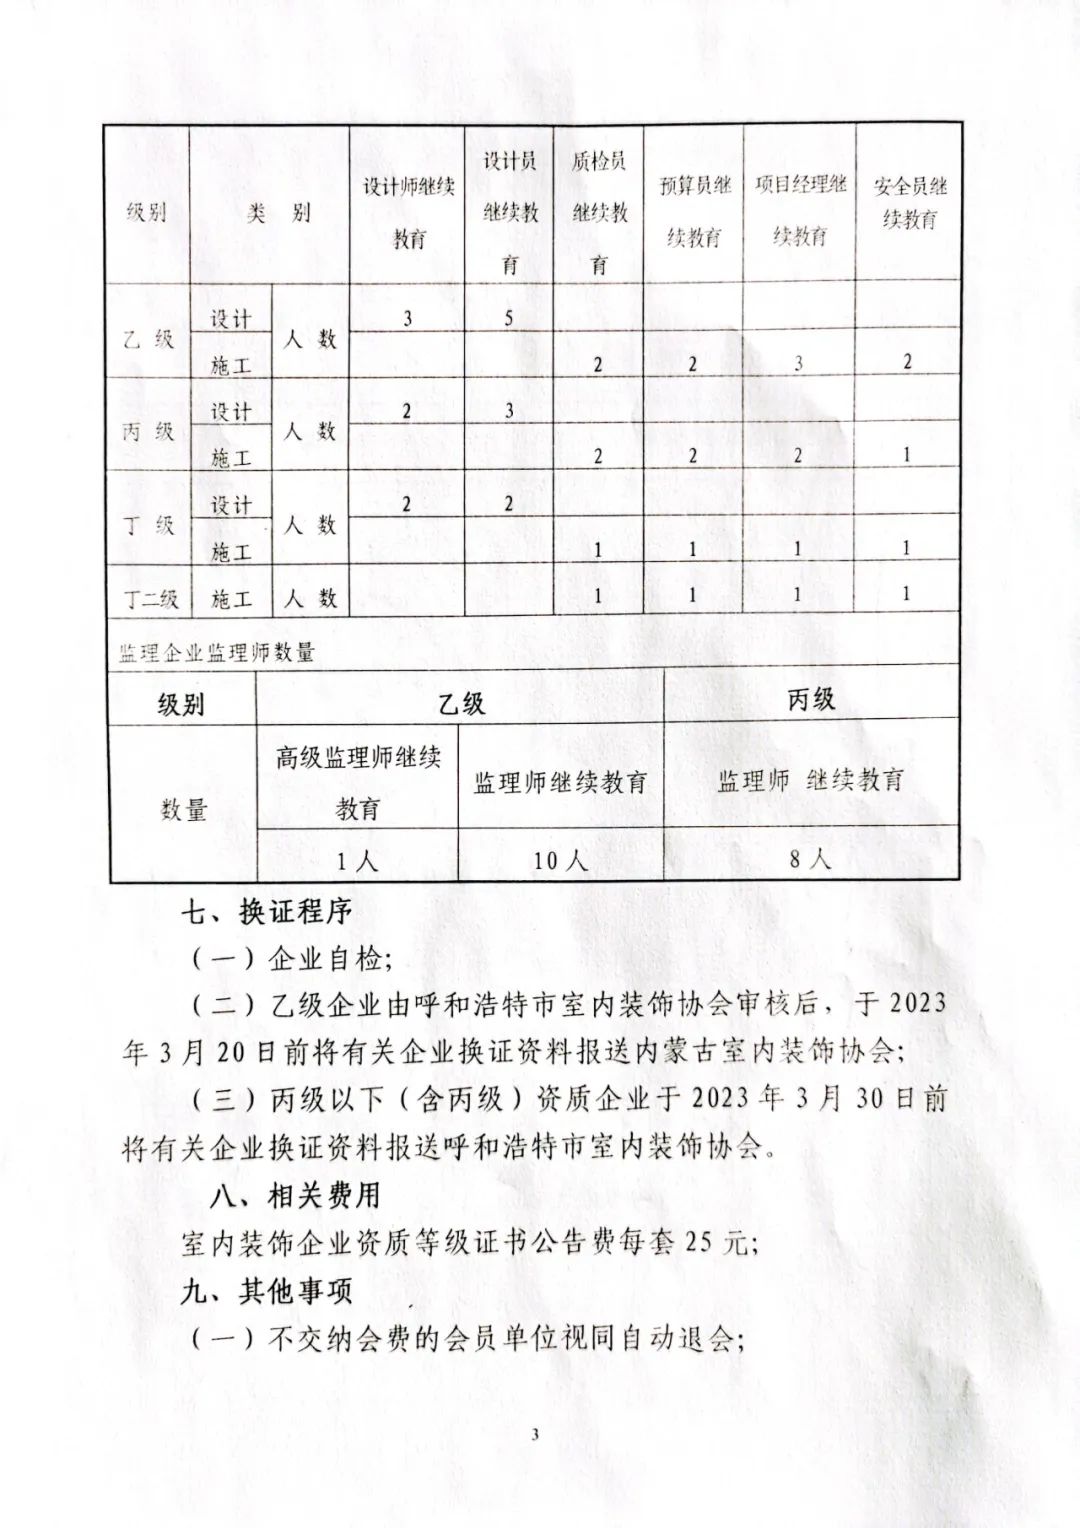 级别 类 别 设计师继续教育 设计员继续教育 质检员继续教育 预算员继续教育 项目经理继续教育 安全员继续教育
乙 级 设计 人 数 3 5
施工 2 2 3 2
丙 级 设计 人 数 2 3
施工 2 2 2 1
丁 级 设计 人 数 2 2
施工 1 1 1 1
丁二级 施工 人 数 1 1 1 1
监理企业监理师数量
级别 乙级 丙级
数量 高级监理师继续教育 监理师继续教育 监理师 继续教育
1人 10人 8人
七、换证程序
（一）企业自检;
（二）乙级企业由呼和浩特市室内装饰协会审核后，于2023
年3月20日前将有关企业换证资料报送内蒙古室内装饰协会;
（三）丙级以下（含丙级）资质企业于2023年3月30日前
将有关企业换证资料报送呼和浩特市室内装饰协会。
八、相关费用
室内装饰企业资质等级证书公告费每套25元;
九、其他事项
（一）不交纳会费的会员单位视同自动退会;
3